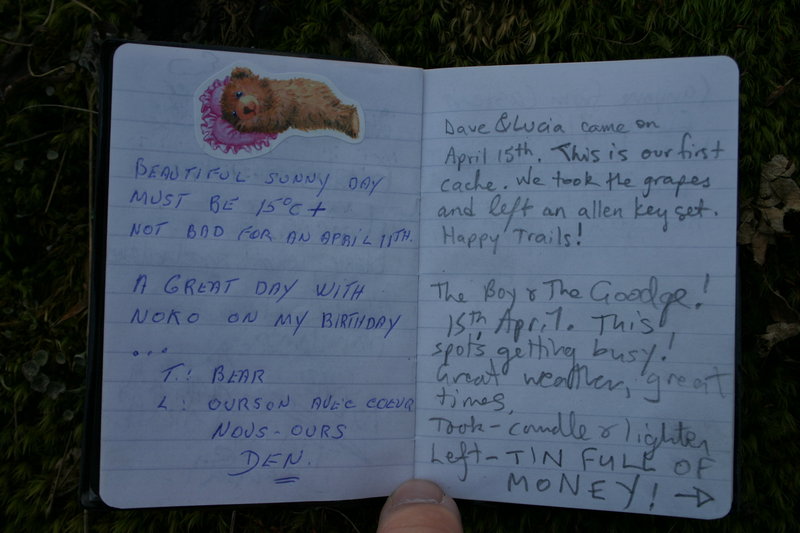 BEAUTIFUL SUNNY DAY
MUST BE 15°C +
NOT BAD FOR AN APRIL 11TH.
A GREAT DAY WITH
NOKO ON MY BIRTHDAY
...
T.: BEAR
L: OURSON AVEC COEUR
NOUS-OURS
DEN.
Dave & Lucia came on
April 15th. This is our first
cache. We took the grapes
and left an allen key set.
Happy Trails!
The Boy & The Goodge!
15th April. This
spot's getting busy!
Great weather, great
times,
Took - candle & lighter
Left - TIN FULL OF
MONEY! →